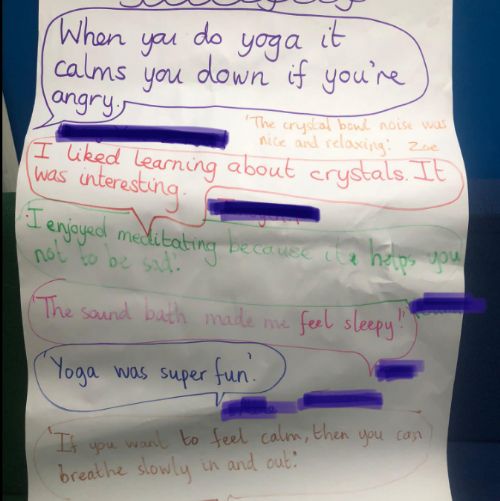 When you do yoga it
calms you down if you're
angry.
'The crystal bowl noise was
nice and relaxing! Zoe
I liked learning about crystals. It
was interesting.
I enjoyed meditating because it helps you
not to be sad!'
'The sound bath made me feel sleepy!'
'Yoga was super fun.'
'If you want to feel calm, then you can
breathe slowly in and out!'